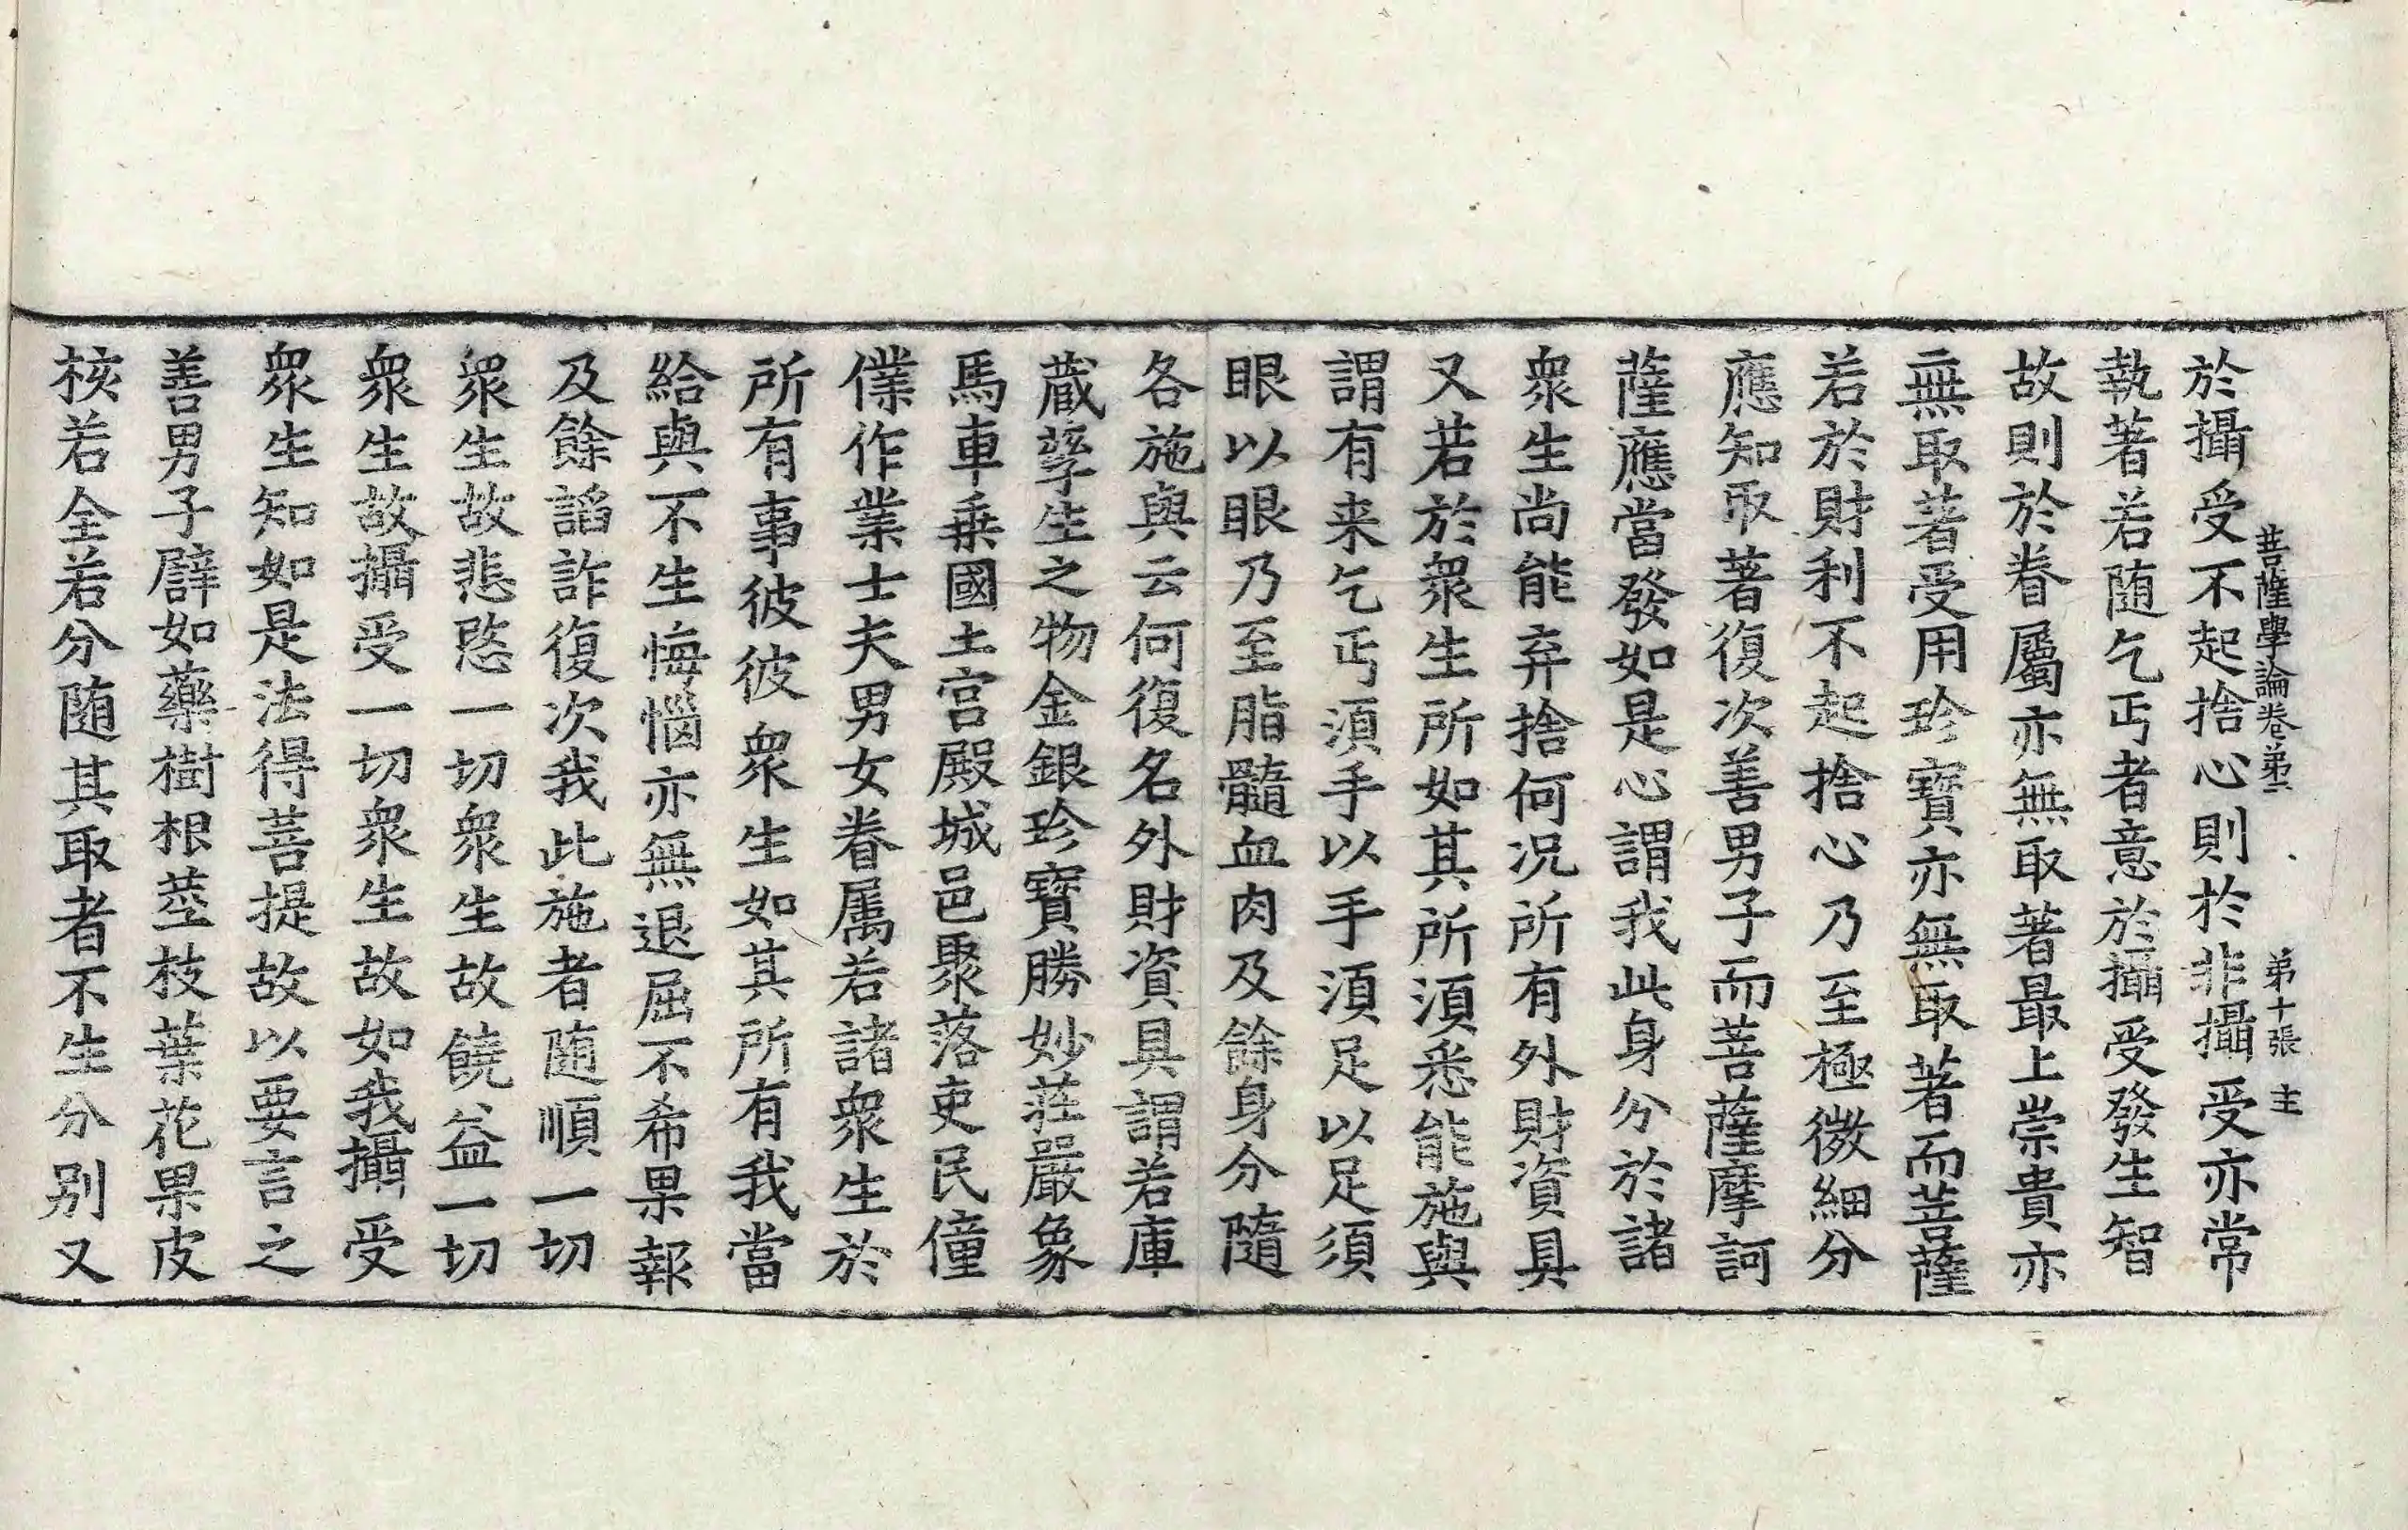 菩薩學論卷弟二 弟十張 主
於攝受不起捨心則於非攝受亦常
執著若随乞丐者意於攝受發生智
故則於眷屬亦無取著最上崇貴亦
無取著受用珍寶亦無取著而菩薩
若於財利不起捨心乃至極微細分
應知取著復次善男子而菩薩摩訶
薩應當發如是心謂我此身分於諸
衆生尚能弃捨何况所有外財資具
又若於衆生所如其所湏悉能施與
謂有来乞丐湏手以手湏足以足須
眼以眼乃至脂髓血肉及餘身分隨
各施與云何復名外財資具謂若庫
蔵孳生之物金銀珍寶勝妙莊嚴象
馬車乗國土宫殿城邑聚落吏民僮
僕作業士夫男女眷属若諸衆生於
所有事彼彼衆生如其所有我當
給與不生悔惱亦無退屈不希果報
及餘謟詐復次我此施者随順一切
衆生故悲愍一切衆生故饒益一切
衆生故攝受一切衆生故如我攝受
衆生知如是法得菩提故以要言之
善男子譬如藥樹根莖枝葉花果皮
核若全若分随其取者不生分别又